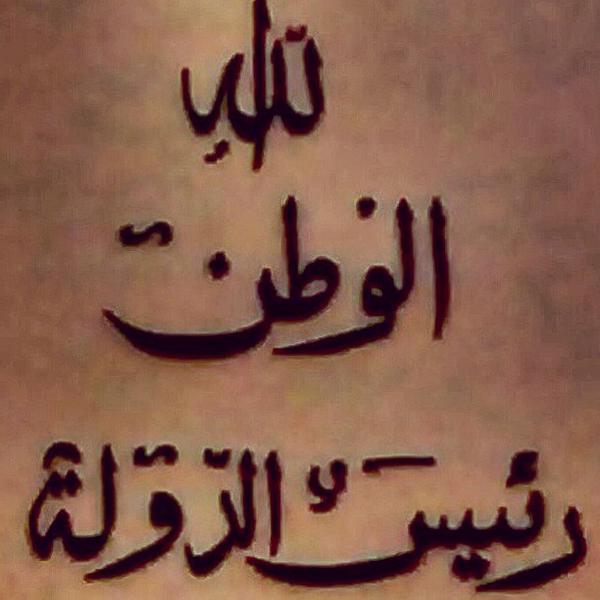 الله
الوطن
رئيس الدولة